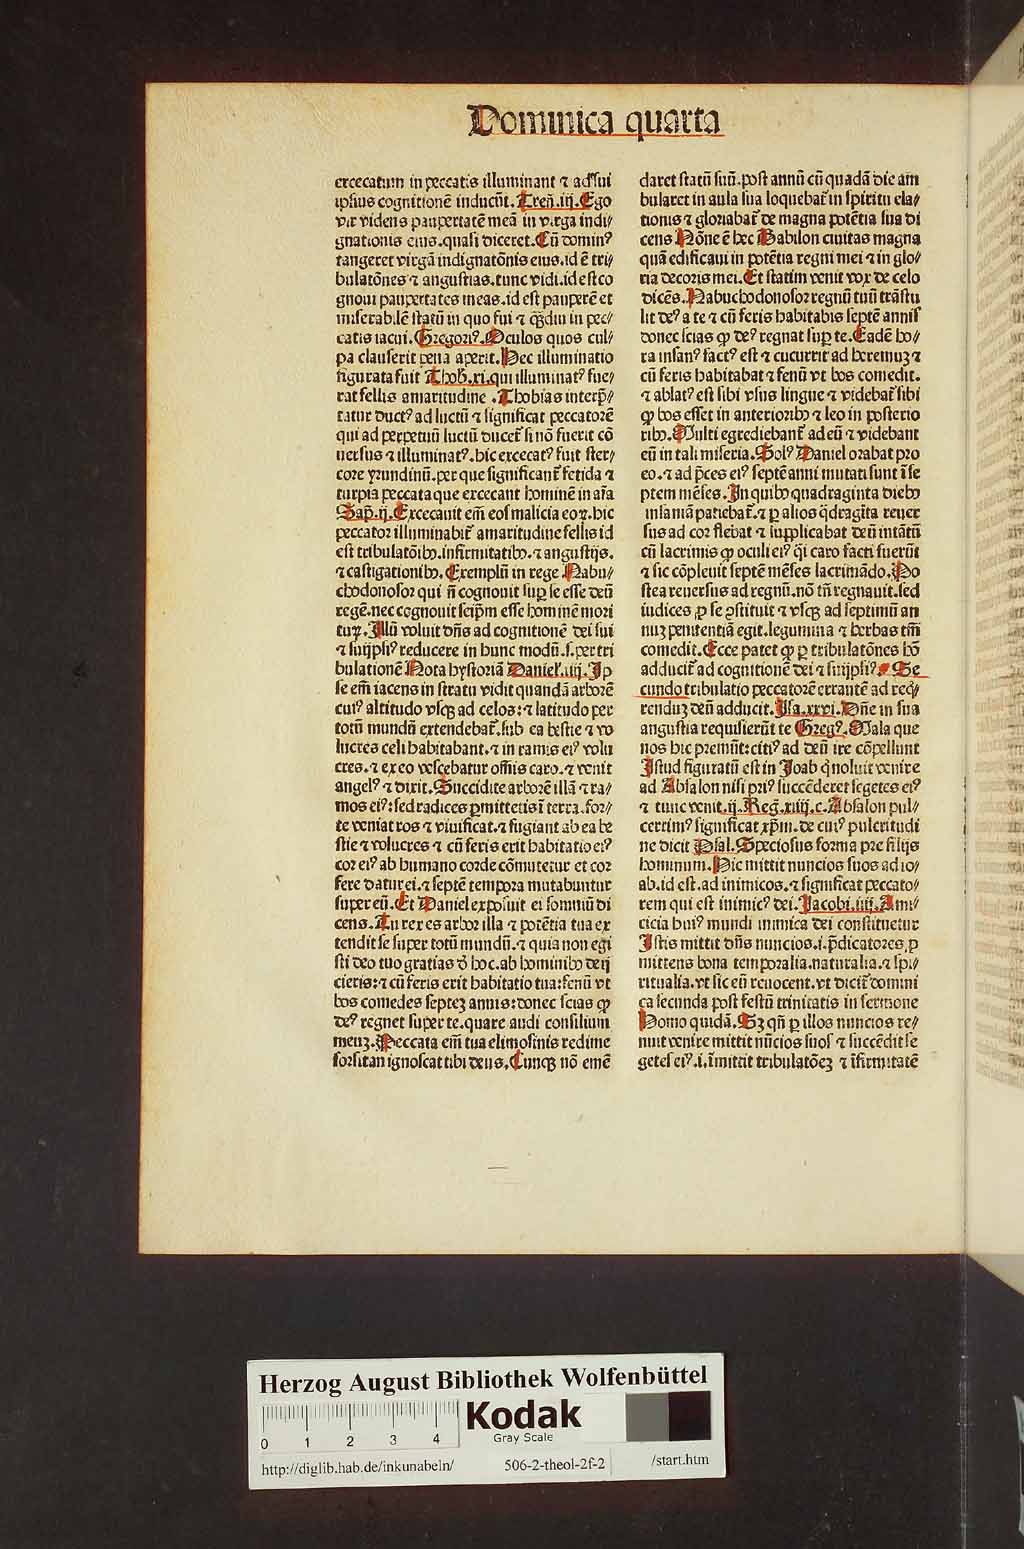 Dominica quarta
excecatum in peccatis illuminant ⁊ ad sui
ipsius cognitionē inducūt. Tren̄. iij. Ego
vir videns paupertatē meā in virga indi⸗
gnationis eius. quasi diceret. Cū dominꝰ
tangeret virgā indignatōnis eius. id ē tri⸗
bulatōnes ⁊ angustias. tunc vidi. id est co
gnoui paupertates meas. id est pauperē et
miserabilē statū in quo fui ⁊ qͣꝫdiu in pec⸗
catis iacui. Gregoriꝰ. Oculos quos cul⸗
pa clauserit pena aperit. Hec illuminatio
figurata fuit Thob. xi. qui illuminatꝰ fue⸗
rat fellis amaritudine. Thobias interp̄⸗
tatur ductꝰ ad luctū ⁊ significat peccatorē
qui ad perpetuū luctū ducet̄ si nō fuerit cō
uersus ⁊ illuminatꝰ. hic excecatꝰ fuit ster⸗
core yrundinū. per que significant̄ fetida ⁊
turpia peccata que excecant hominē in aīa
Sap̄. ij. Excecauit em̄ eos malicia eoꝝ. hic
peccator illuminabit̄ amaritudine fellis id
est tribulatōibꝫ. infirmitatibꝫ. ⁊ angustijs.
⁊ castigationibꝫ. Exemplū in rege Nabu⸗
chodonosor qui n̄ cognouit suꝑ se esse deū
regē. nec cognouit seip̄m esse hominē mori
tuꝝ. Illū voluit dn̄s ad cognitionē dei sui
⁊ suijpsiꝰ reducere in hunc modū. s. per tri
bulationē Nota hystoriā Daniel̄. iiij. Ip
se em̄ iacens in stratu vidit quandā arborē
cuiꝰ altitudo vsqꝫ ad celos: ⁊ latitudo per
totū mundū extendebat̄. sub ea bestie ⁊ vo
lucres celi habitabant. ⁊ in ramis eiꝰ volu
cres. ⁊ ex eo vescebatur om̄is caro. ⁊ venit
angelꝰ ⁊ dixit. Succidite arborē illā ⁊ ra⸗
mos eiꝰ: sed radices ꝑmittetis ī terra. for⸗
te veniat ros ⁊ viuificat. ⁊ fugiant ab ea be
stie ⁊ volucres ⁊ cū feris erit habitatio eiꝰ
cor eiꝰ ab humano corde cōmutetur et cor
fere datur ei. ⁊ septē tempora mutabuntur
super eū. Et Daniel exposuit ei somniū di
cens. Tu rex es arbor illa ⁊ potētia tua ex
tendit se super totū mundū. ⁊ quia non egi
sti deo tuo gratias ō hoc. ab hominibꝫ deij
cieris: ⁊ cū feris erit habitatio tua: fenū vt
bos comedes septeꝫ annis: donec scias ꝙ
deꝰ regnet super te. quare audi consilium
meuꝫ. Peccata em̄ tua elimosinis redime
forsitan ignoscat tibi deus. Cunqꝫ nō emē
daret statū suū. post annū cū quadā die am
bularet in aula sua loquebat̄ in spiritu ela⸗
tionis ⁊ gloriabat̄ de magna potētia sua di
cens Nōne ē hec Babilon ciuitas magna
quā edificaui in potētia regni mei ⁊ in glo⸗
ria decoris mei. Et statim venit vox de celo
dicēs. Nabuchodonosor regnū tuū trāstu
lit deꝰ a te ⁊ cū feris habitabis septē annis
donec scias ꝙ deꝰ regnat suꝑ te. Eadē ho⸗
ra insanꝰ factꝰ est ⁊ cucurrit ad heremuꝫ ⁊
cū feris habitabat ⁊ fenū vt bos comedit.
⁊ ablatꝰ est sibi vsus lingue ⁊ videbat̄ sibi
ꝙ bos esset in anterioribꝫ ⁊ leo in posterio
ribꝫ. Multi egrediebant̄ ad eū ⁊ videbant
eū in tali miseria. Solꝰ Daniel orabat pro
eo. ⁊ ad p̄ces eiꝰ septē anni mutati sunt ī se
ptem mēses. In quibꝫ quadraginta diebꝫ
insaniā patiebat̄. ⁊ ꝑ alios qͣdragīta reuer
sus ad cor flebat ⁊ supplicabat deū intātū
cū lacrimis ꝙ oculi eiꝰ qͣi caro facti fuerūt
⁊ sic cōpleuit septē mēses lacrimādo. Po
stea reuersus ad regnū. nō tn̄ regnauit. sed
iudices ꝓ se ꝯstituit ⁊ vsqꝫ ad septimū an
nuꝫ penitentiā egit. legumina ⁊ herbas tm̄
comedit. Ecce patet ꝙ ꝑ tribulatōnes hō
adducit̄ ad cognitionē dei ⁊ suijpsiꝰ. Se
cundo tribulatio peccatorē errantē ad req̄⸗
renduꝫ deū adducit. Isa. xxvi. Dn̄e in sua
angustia requisierūt te Gregꝰ. Mala que
nos hic premūt: citiꝰ ad deū ire cōpellunt
Istud figuratū est in Joab q̇ noluit venire
ad Absalon nisi priꝰ succēderet segetes eiꝰ
⁊ tunc venit. ij. Reḡ. xiiij. c. Absalon pul⸗
cerrimꝰ significat xp̄m. de cuiꝰ pulcritudi
ne dicit Psal. Speciosus forma pre filijs
hominum. Hic mittit nuncios suos ad io⸗
ab. id est. ad inimicos. ⁊ significat peccato⸗
rem qui est inimicꝰ dei. Jacobi. iiij. Ami⸗
cicia huiꝰ mundi inimica dei constituetur
Istis mittit dn̄s nuncios. i. p̄dicatores ꝓ
mittens bona temporalia. naturalia. ⁊ spi⸗
ritualia. vt sic eū reuocent. vt dicit̄ domini
ca secunda post festū trinitatis in sermone
Homo quidā. Sꝫ qn̄ ꝑ illos nuncios re⸗
nuit venire mittit nūcios suos ⁊ succēdit se
getes eiꝰ. i. īmittit tribulatōeꝫ ⁊ īfirmitatē
Herzog August Bibliothek Wolfenbüttel
0 1 2 3 4
Kodak
Gray Scale
http://diglib.hab.de/inkunabeln/ 506-2-theol-2f-2 /start.htm